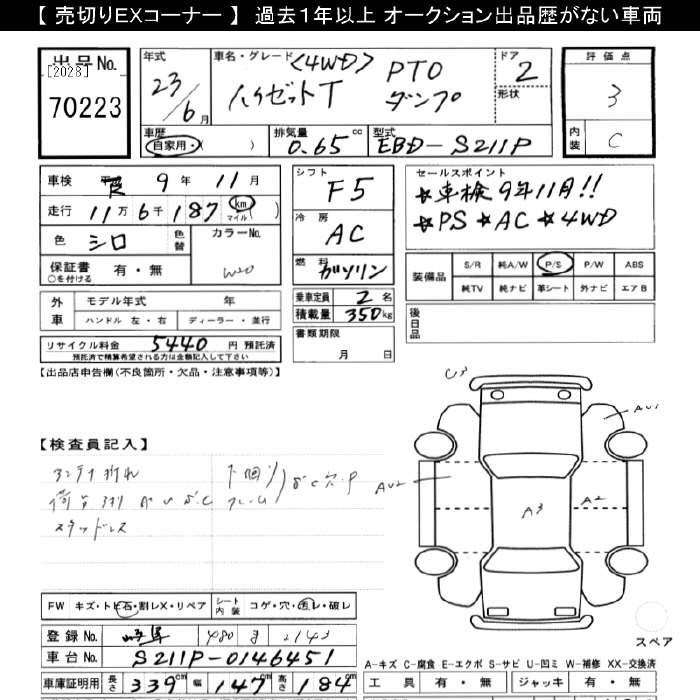 【 売切りEXコーナー 】 過去1年以上 オークション出品歴がない車両
出品No.
[2028]
70223
年式
23/6月
車名・グレード
〈4WD〉 PTO
ハイゼットT ダンプ
ドア
2
形状
評価点
3
内装
C
車歴
自家用・( )
排気量
0.65 cc
型式
EBD-S211P
車検 9年 11月
走行 11万 6千 187 km マイル ( )
色 シロ
色替
カラーNo.
W20
保証書 有・無
○を付ける
外車
モデル年式 年
ハンドル 左・右 ディーラー・並行
リサイクル料金 5440 円 預託済
預託済で精算希望される方は金額記入して下さい
シフト
F5
冷房
AC
燃料
ガソリン
乗車定員 2名
積載量 350kg
書類期限
月 日
セールスポイント
★車検9年11月!!
★PS ★AC ★4WD
装備品
S/R 純A/W P/S P/W ABS
純TV 純ナビ 革シート 外ナビ エアB
後日品
【出品店申告欄(不良箇所・欠品・注意事項等)】
【検査員記入】
アンテナ折れ
スタッドレス
下廻り
フレーム
AU1
AU2
A3
A2
FW キズ・トビ石・割レX・リペア
シート内装 コゲ・穴・汚レ・破レ
登録No. 480 2143
車台No. S211P-0146451
車庫証明用 長さ 339cm 幅 147cm 高さ 184cm
スペア
A-キズ C-腐食 E-エクボ S-サビ U-凹ミ W-補修 XX-交換済
工具 有・無 ジャッキ 有・無